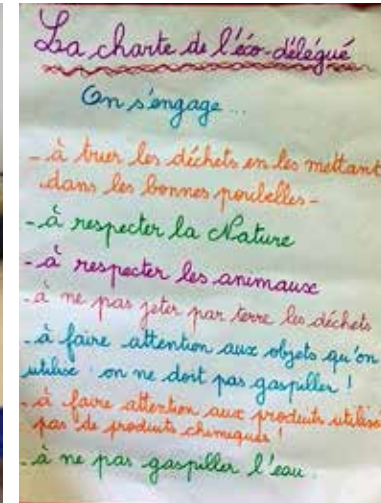 La charte de l'éco-délégué
On s'engage ...
- à trier les déchets en les mettant
dans les bonnes poubelles -
- à respecter la Nature
- à respecter les animaux
- à ne pas jeter par terre les déchets
- à faire attention aux objets qu'on
utilise : on ne doit pas gaspiller !
- à faire attention aux produits utilisés
pas de produits chimiques !
- à ne pas gaspiller l'eau.